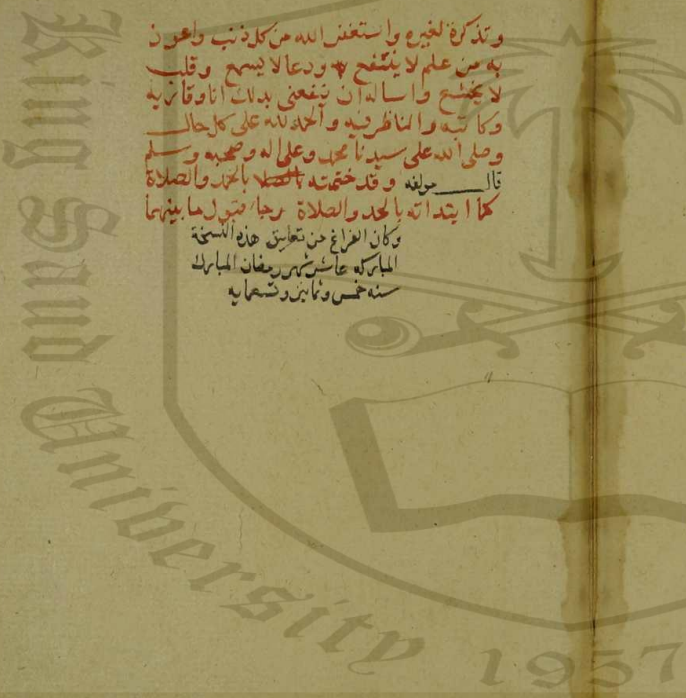 وتذكرة لغيره واستغفر الله من كل ذنب واعوذ
به من علم لا ينتفع به ودعا لا يسمع وقلب
لا يخشع واساله ان ينفعني بذلك انا وقاريه
وكاتبه والناظر فيه والحمد لله على كل حال
وصلى الله على سيدنا محمد وعلى اله وصحبه وسلم
قال مولفه وقد ختمته بالحمد والصلاة
كما ابتداته بالحمد والصلاة رجا قبول ما بينهما
وكان الفراغ من تعليق هذه النسخة
المباركه عاشر شهر رمضان المبارك
سنه خمس وثمانين وتسعمايه
King Saud University 1957